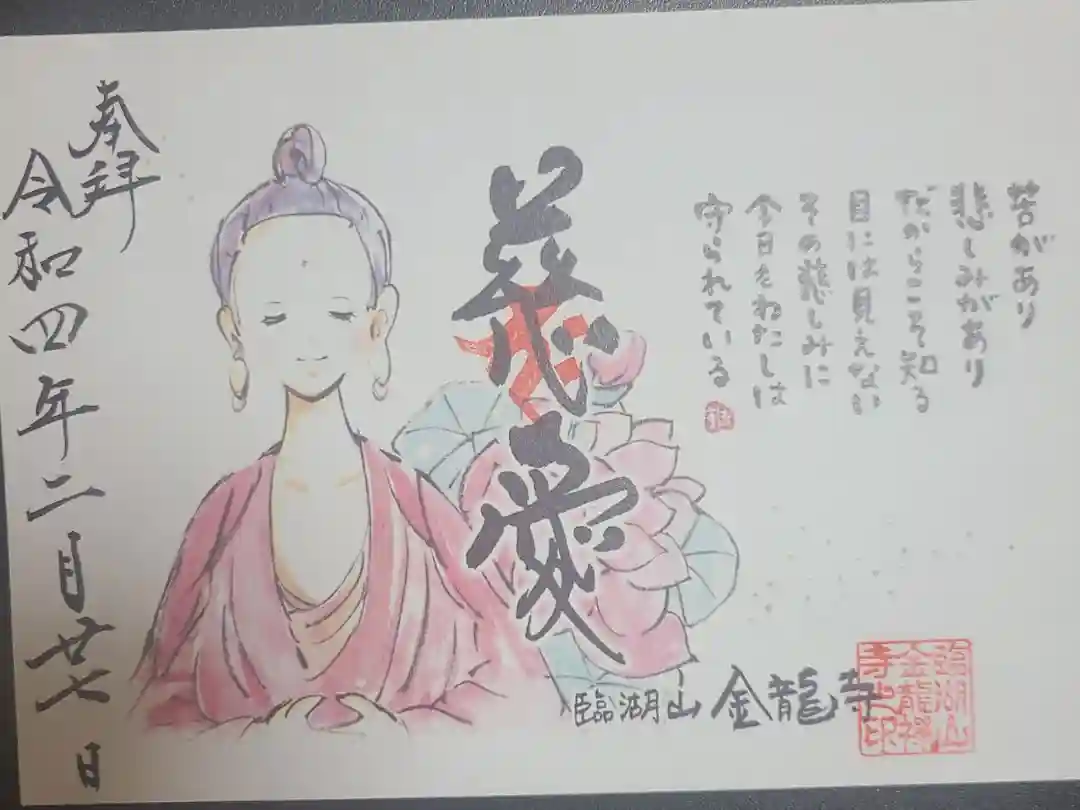 苦があり
悲しみがあり
だからこそ知る
目には見えない
その悲しみに
今日もわたしは
守られている
慈愛
臨湖山 金龍寺
臨湖山
金龍禅
寺之印
奉拝
令和四年二月廿七日